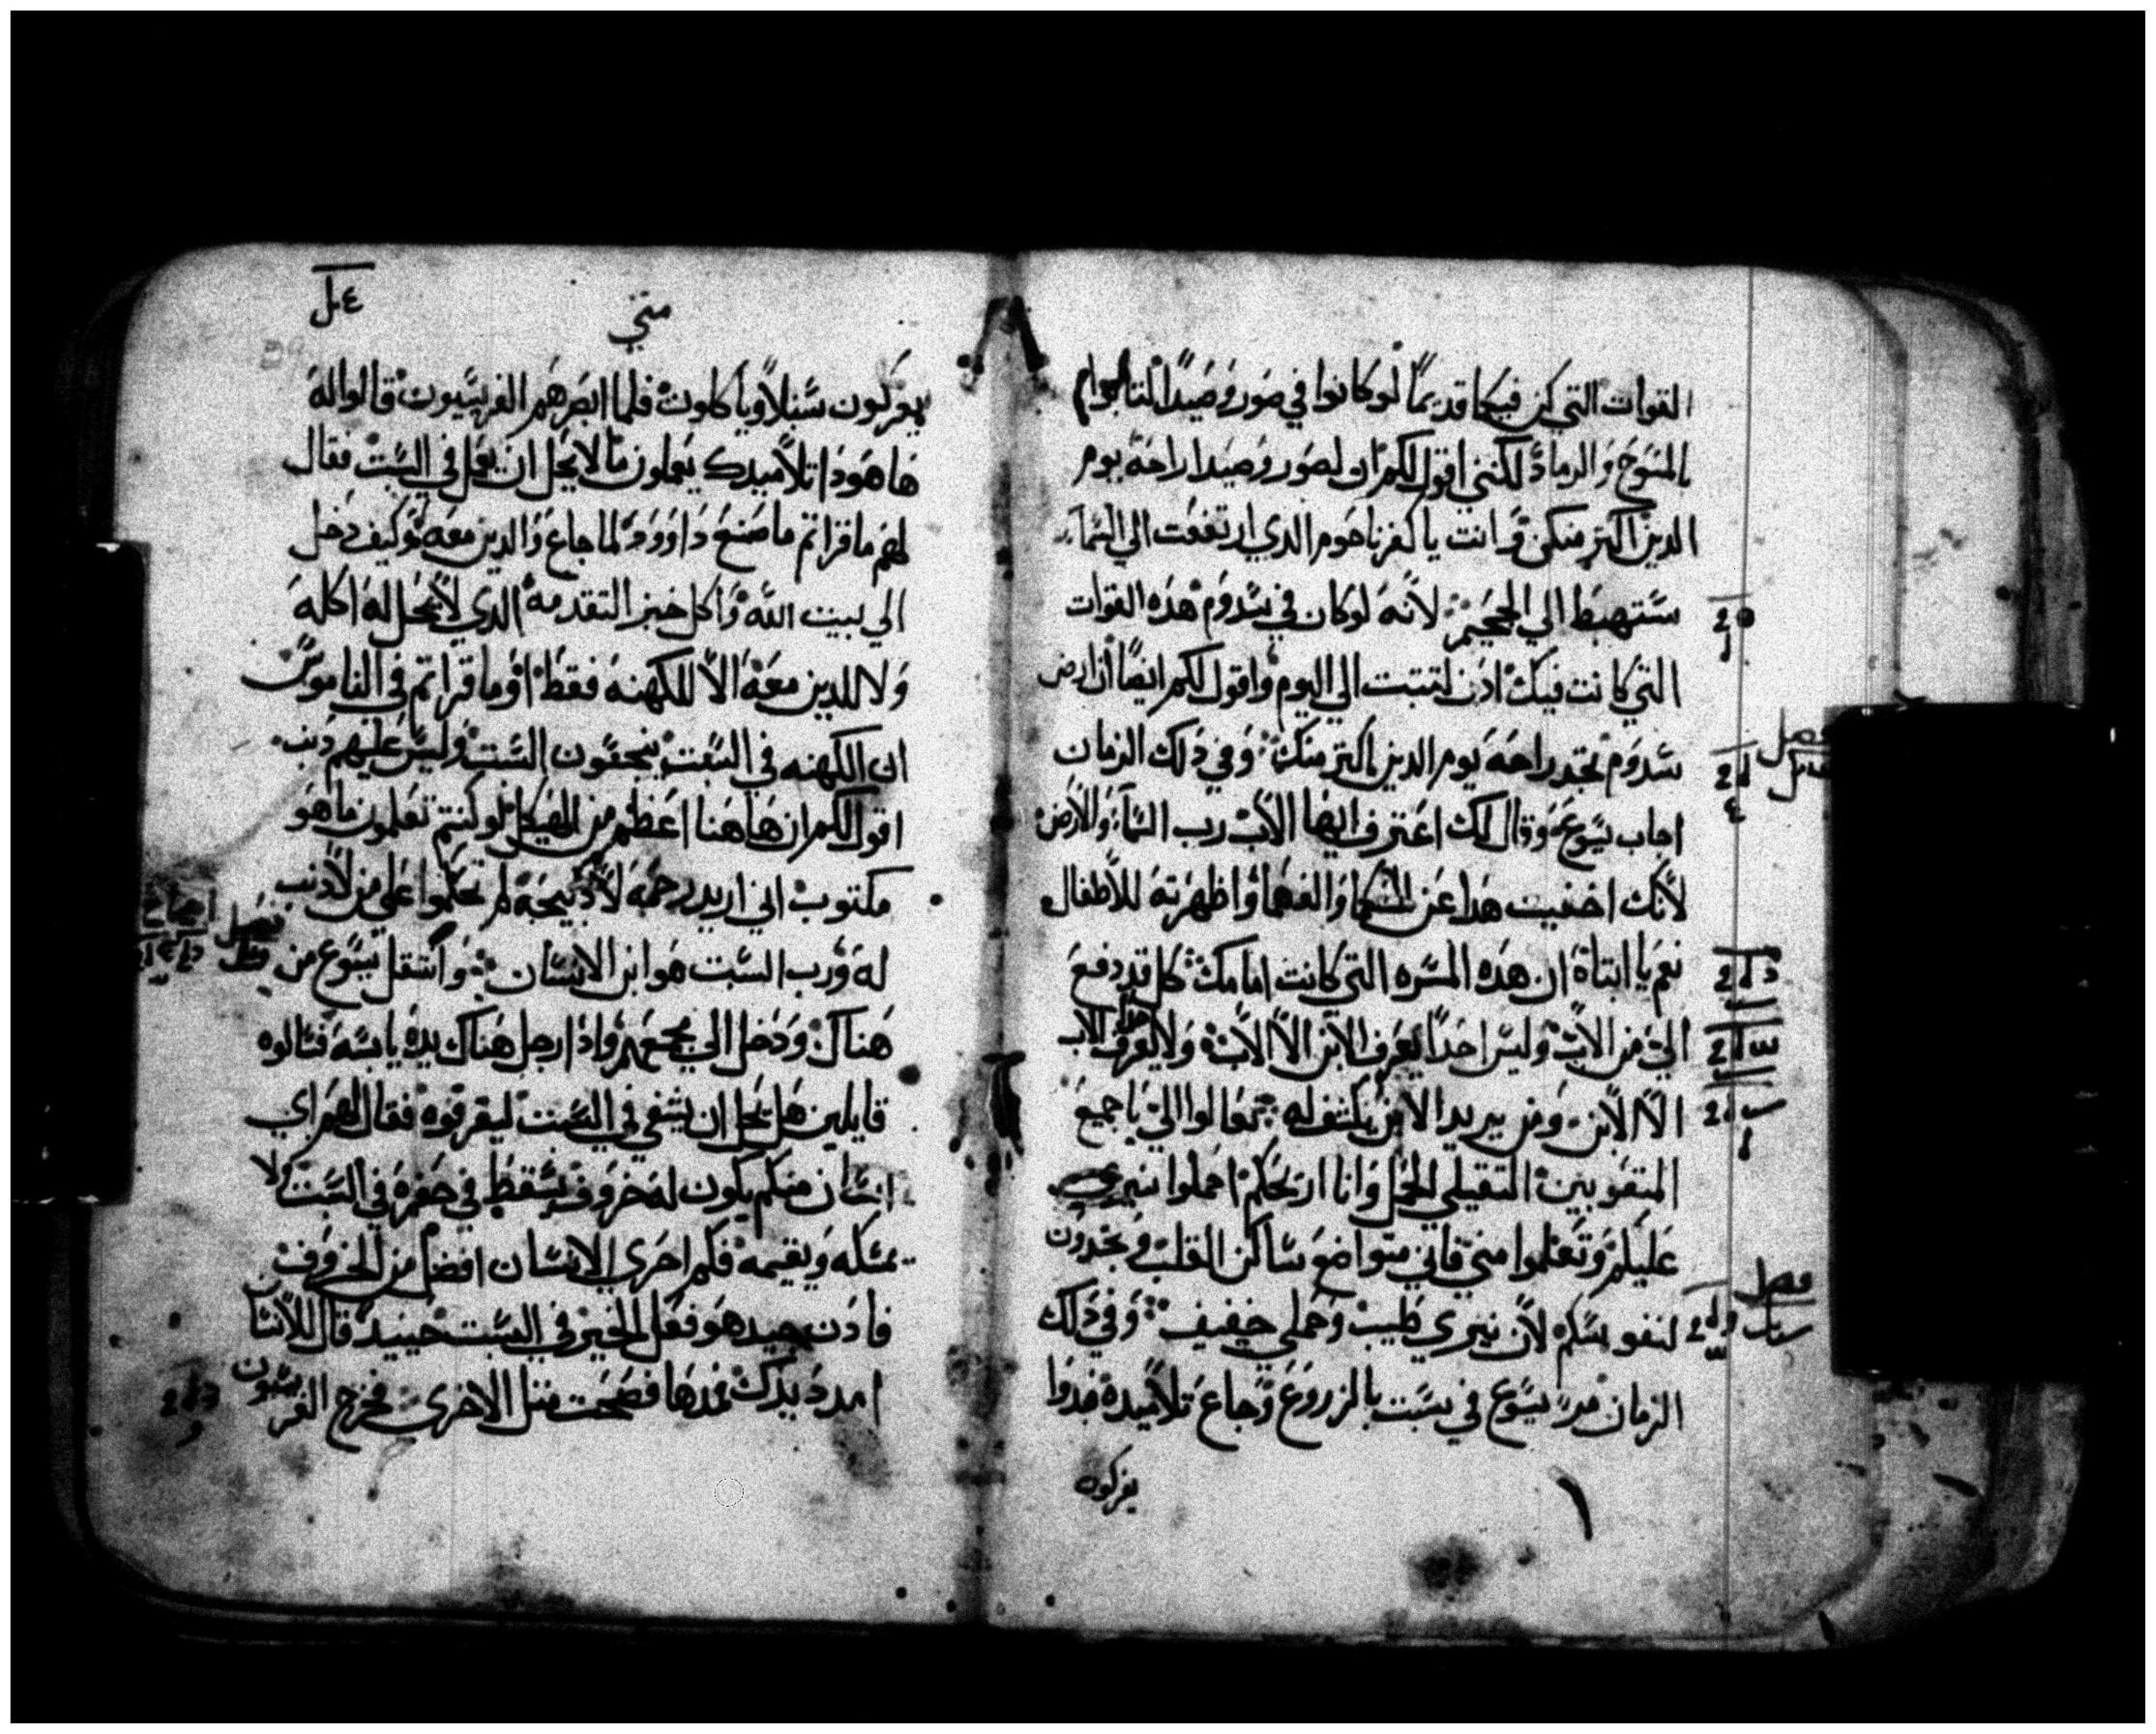 القوات التي كن فيكما قديمًا لو كانوا في صور وصيدا لتابوا
بالمسوح والرماد لكنني اقول لكم ان لصور وصيدا راحة يوم
الدين اكتر منكن وانت يا كفرناحوم الدي ارتفعت الي السماء
ستهبط الي الجحيم لانه لو كان في سدوم هده القوات
التي كانت فيك ادن لتبتت الي اليوم واقول لكم ايضًا ان ارض
سدوم تجد راحة يوم الدين اكتر منك وفي دلك الزمان
اجاب يسوع وقال لك اعترف ايها الاب رب السماء والارض
لانك اخفيت هدا عن الحكما والفهما واظهرته للاطفال
نعم يا ابتاة ان هده المسره التي كانت امامك كل قد دفع
الي من الاب وليس احدًا يعرف الابن الا الاب ولا يعرف الاب
الا الابن ومن يريد الابن يكشف له تعالوا الي يا جميع
المتعوبين التقيلي الحمل وانا اريحكم احملوا نيري
عليكم وتعلموا مني فاني متواضع ساكن القلب وتجدون
لنفوسكم لان نيري طيب وحملي خفيف وفي دلك
الزمان مر يسوع في سبت بالزروع وجاع تلاميده فبدوا
يفركون
متي
يفركون سنبلاً وياكلون فلما ابصرهم الفريسيون قالوا له
ها هودا تلاميدك يعملون ما لا يحل ان يعمل في السبت فقال
لهم ما قراتم ما صنع داوود لما جاع والدين معه كيف دخل
الي بيت الله واكل خبز التقدمه الدي لا يحل له اكله
ولا للدين معه الا للكهنه فقط او ما قراتم في الناموس
ان الكهنه في السبت ينجسون السبت وليس عليهم دنب
اقول لكم ان هاهنا اعظم من الهيكل لو كنتم تعلمون ما هو
مكتوب اني اريد رحمه لا دبيحة لم تحكموا علي من لا دنب
له ورب السبت هو ابن الانسان وانتقل يسوع من
هناك ودخل الي مجمعهم وادا رجل هناك يده يابسه فسالوه
قايلين هل يحل ان يشفي في السبت ليقرفوه فقال لهم اي
انسان منكم يكون له خروف يسقط في حفره في السبت ولا
يمسكه ويقيمه فكم احري الانسان افضل من الخروف
فادن جيد هو فعل الخير في السبت حينيد قال للانسان
امدد يدك فمدها فصحت متل الاخري فخرج الفريسيون